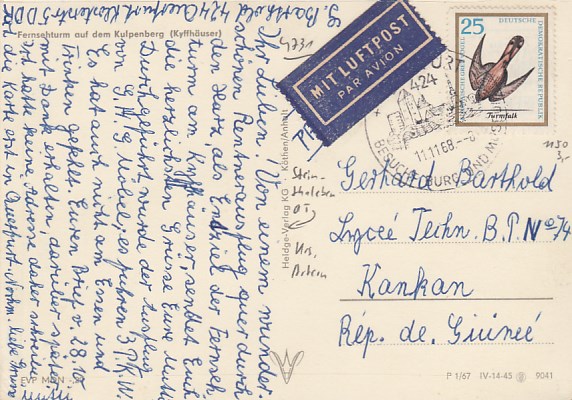 Fernsehturm auf dem Kulpenberg (Kyffhäuser)
S. Barthold 424 Querfurt Klosterstr 5 DDR
Ihr Lieben! Von einem wunder-
schönen Rentnerausflug quer durch
den Harz, als Endziel der Fernseh-
turm am Kyffhäuser sendet Euch
die herzlichsten Grüsse Eure Mutti
Durchgeführt wurde der Ausflug
von G.H.G. Möbel, es fuhren 3 P.K.W.
Es hat uns nichts am Essen und
Trinken gefehlt. Euren Brief v. 28.10
mit Dank erhalten, darüber später
Ich hatte keine Adresse daher schreibe
ich die Karte erst in Querfurt. Nochm. liebe Grüsse
Mutti
4731
MIT LUFTPOST
PAR AVION
Heldge-Verlag KG · Köthen/Anhalt
25
DEUTSCHE
DEMOKRATISCHE REPUBLIK
Turmfalk
424
11.11.68
BESUCHT BURG UND
1150
Gerhard Barthold
Lyceé Techn. B.P. No 74
Kankan
Rép. de Guineé
EVP MDN
P 1/67 IV-14-45 9041